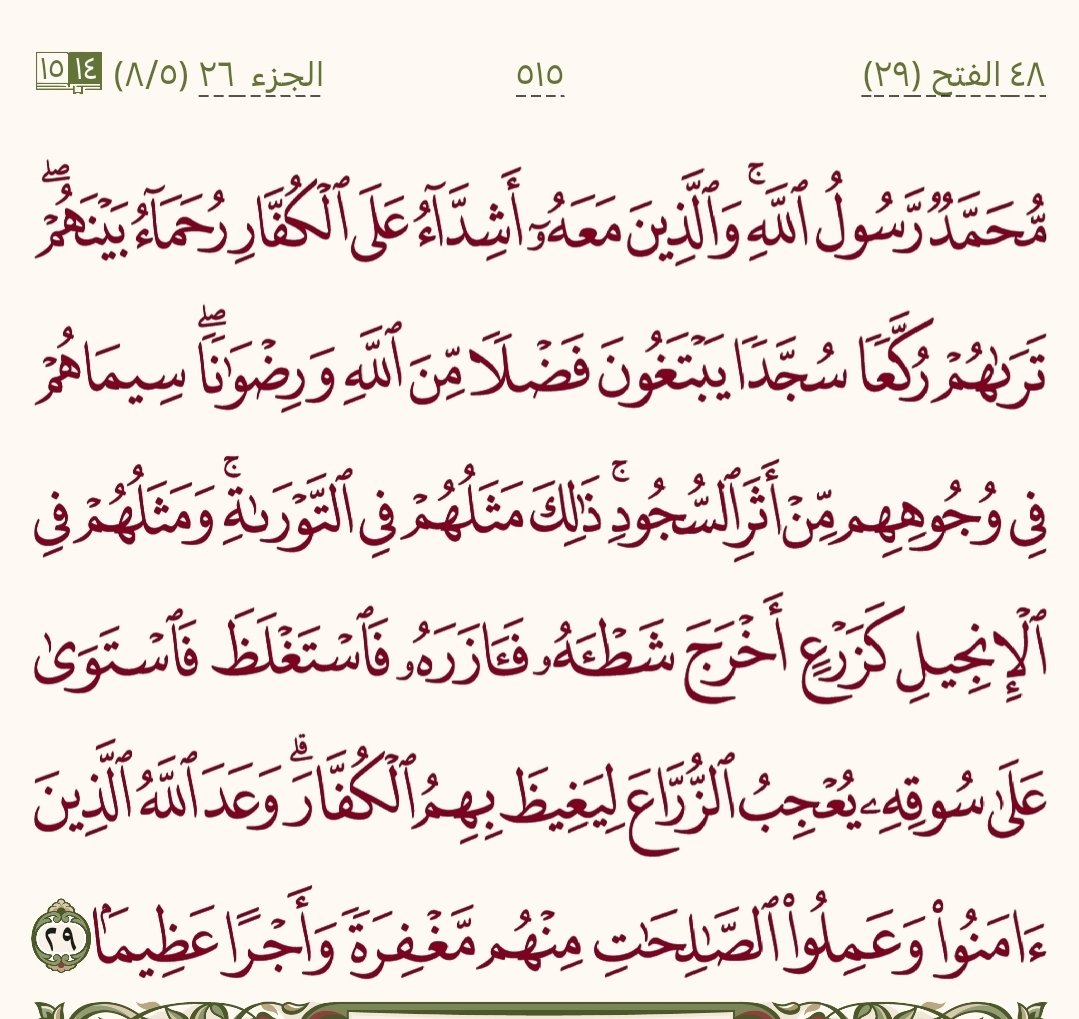 ٤٨ الفتح (٢٩) ٥١٥ الجزء ٢٦ (٨/٥) ١٤ ١٥
مُّحَمَّدٌ رَّسُولُ ٱللَّهِۚ وَٱلَّذِينَ مَعَهُۥٓ أَشِدَّآءُ عَلَى ٱلْكُفَّارِ رُحَمَآءُ بَيْنَهُمْۖ
تَرَىٰهُمْ رُكَّعًا سُجَّدًا يَبْتَغُونَ فَضْلًا مِّنَ ٱللَّهِ وَرِضْوَٰنًاۖ سِيمَاهُمْ
فِى وُجُوهِهِم مِّنْ أَثَرِ ٱلسُّجُودِۚ ذَٰلِكَ مَثَلُهُمْ فِى ٱلتَّوْرَىٰةِۚ وَمَثَلُهُمْ فِى
ٱلْإِنجِيلِ كَزَرْعٍ أَخْرَجَ شَطْـَٔهُۥ فَـَٔازَرَهُۥ فَٱسْتَغْلَظَ فَٱسْتَوَىٰ
عَلَىٰ سُوقِهِۦ يُعْجِبُ ٱلزُّرَّاعَ لِيَغِيظَ بِهِمُ ٱلْكُفَّارَۗ وَعَدَ ٱللَّهُ ٱلَّذِينَ
ءَامَنُوا۟ وَعَمِلُوا۟ ٱلصَّٰلِحَٰتِ مِنْهُم مَّغْفِرَةً وَأَجْرًا عَظِيمًۢا ٢٩